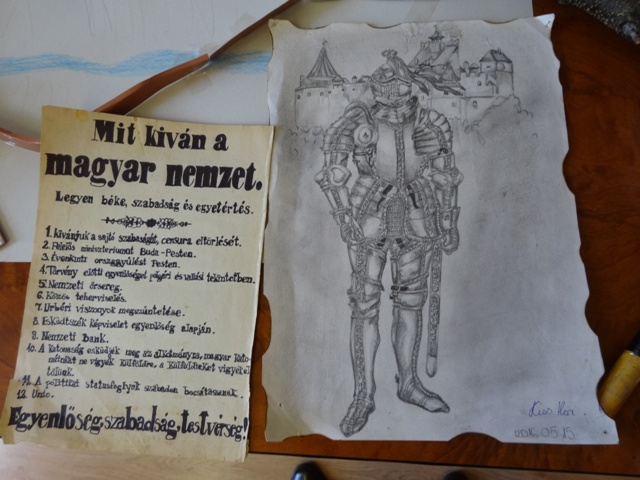 Mit kiván a
magyar nemzet.
Legyen béke, szabadság és egyetértés.
1. Kivánjuk a sajtó szabaságát, censura eltörlését.
2. Felelős ministeriumot Buda-Pesten.
3. Évenkinti országgyülést Pesten.
4. Törvény előtti egyenlőséget polgári és vallási tekintetben.
5. Nemzeti őrsereg.
6. Közös teherviselés.
7. Urbéri viszonyok megszüntetése.
8. Esküdtszék képviselet egyenlőség alapján.
9. Nemzeti Bank.
10. A katonaság esküdjék meg az alkotmányra, magyar kato-
náinkat ne vigyék külföldre, a külföldieket vigyék el
tőlünk.
11. A politikai statusfoglyok szabadon bocsáttassanak.
12. Unio.
Egyenlőség, szabadság, testvérség!
Kiss
05.15